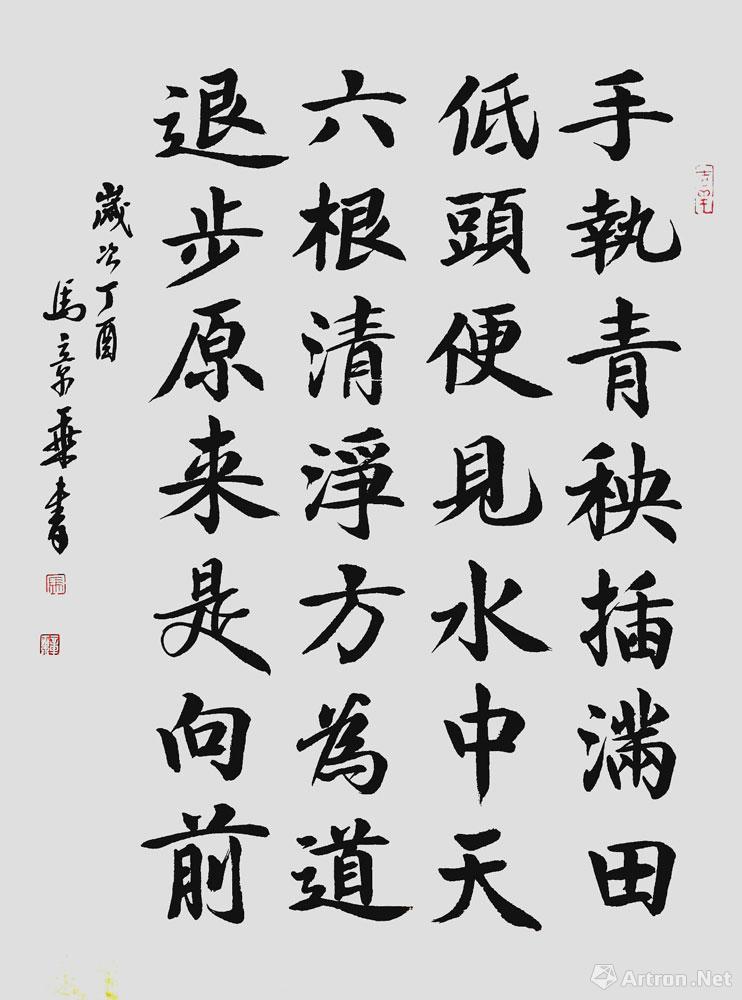 手執青秧插滿田
低頭便見水中天
六根清淨方為道
退步原来是向前
歲次丁酉
馬景華書
Artron.Net